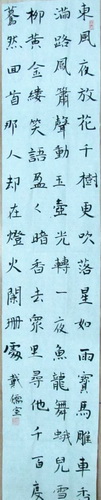 東風夜放花千樹更吹落星如雨寶馬雕車香
滿路鳳簫聲動玉壺光轉一夜魚龍舞蛾兒雪
柳黃金縷笑語盈々暗香去衆里尋他千百度
驀然回首那人却在燈火闌珊處 戴德